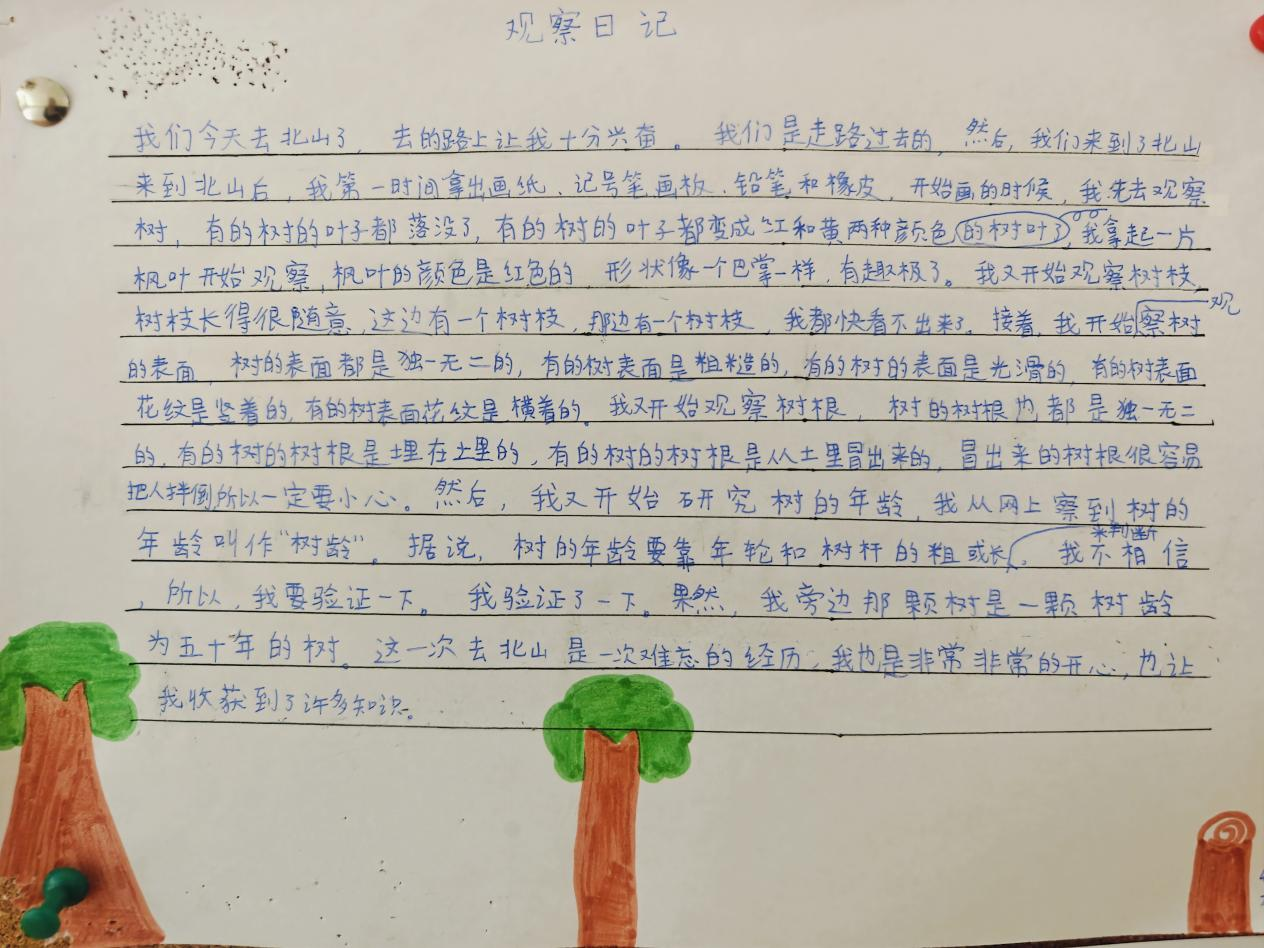 观察日记
我们今天去北山了，去的路上让我十分兴奋。我们是走路过去的，然后，我们来到了北山
来到北山后，我第一时间拿出画纸、记号笔画板、铅笔和橡皮，开始画的时候，我先去观察
树，有的树的叶子都落没了，有的树的叶子都变成红和黄两种颜色的树叶了，我拿起一片
枫叶开始观察，枫叶的颜色是红色的 形状像一个巴掌一样，有趣极了。我又开始观察树枝，
树枝长得很随意，这边有一个树枝，那边有一个树枝，我都快看不出来了。接着，我开始观察树
的表面，树的表面都是独一无二的，有的树表面是粗糙的，有的树的表面是光滑的，有的树表面
花纹是竖着的，有的树表面花纹是横着的。我又开始观察树根，树的树根也都是独一无二
的，有的树的树根是埋在土里的，有的树的树根是从土里冒出来的，冒出来的树根很容易
把人拌倒所以一定要小心。然后，我又开始研究树的年龄，我从网上察到树的
年龄叫作“树龄”。据说，树的年龄要靠年轮和树杆的粗或长来判断。我不相信
，所以，我要验证一下。我验证了一下。果然，我旁边那颗树是一颗树龄
为五十年的树。这一次去北山是一次难忘的经历，我也是非常非常的开心，也让
我收获到了许多知识。